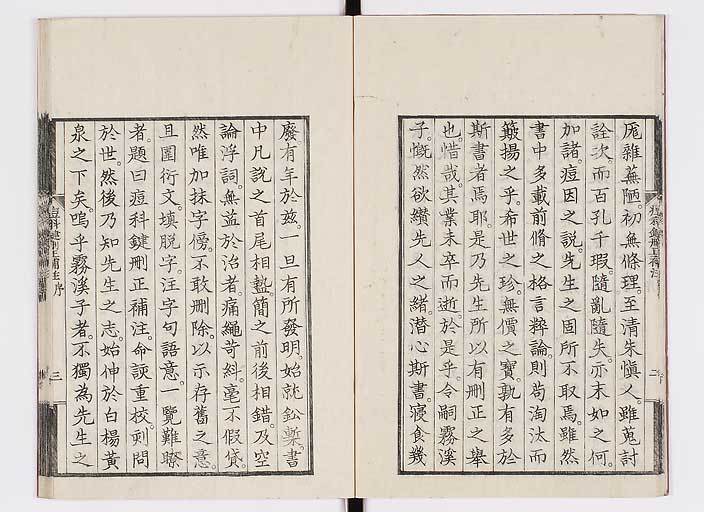 厖雜蕪陋。初無條理。至清朱愼人。雖蒐討
詮次。而百孔千瑕。隨亂隨失。亦末如之何。
加諸。痘因之説。先生之固所不取焉。雖然
書中多載前脩之格言粹論。則苟淘汰而
簸揚之乎。希世之珍。無價之寶。孰有多於
斯書者焉耶。是乃先生所以有刪正之舉
也。惜哉。其業未卒而逝。於是乎。令嗣霧溪
子。慨然欲纘先人之緒。潛心斯書。寢食幾
二
廢。有年於玆。一旦有所發明。始就鉛槧。書
中凡説之首尾相盭。簡之前後相錯。及空
論浮詞。無益於治者。痛繩苛糾。毫不假貸。
然唯加抹字傍。不敢刪除。以示存舊之意。
且圍衍文。填脫字。汪字句語意。一覽難瞭
者。題曰痘科鍵刪正補注。命諏重校。剞問
於世。然後乃知先生之志。始伸於白楊黃
泉之下矣。嗚乎霧溪子者。不獨為先生之
痘科鍵刪正補注 序
三